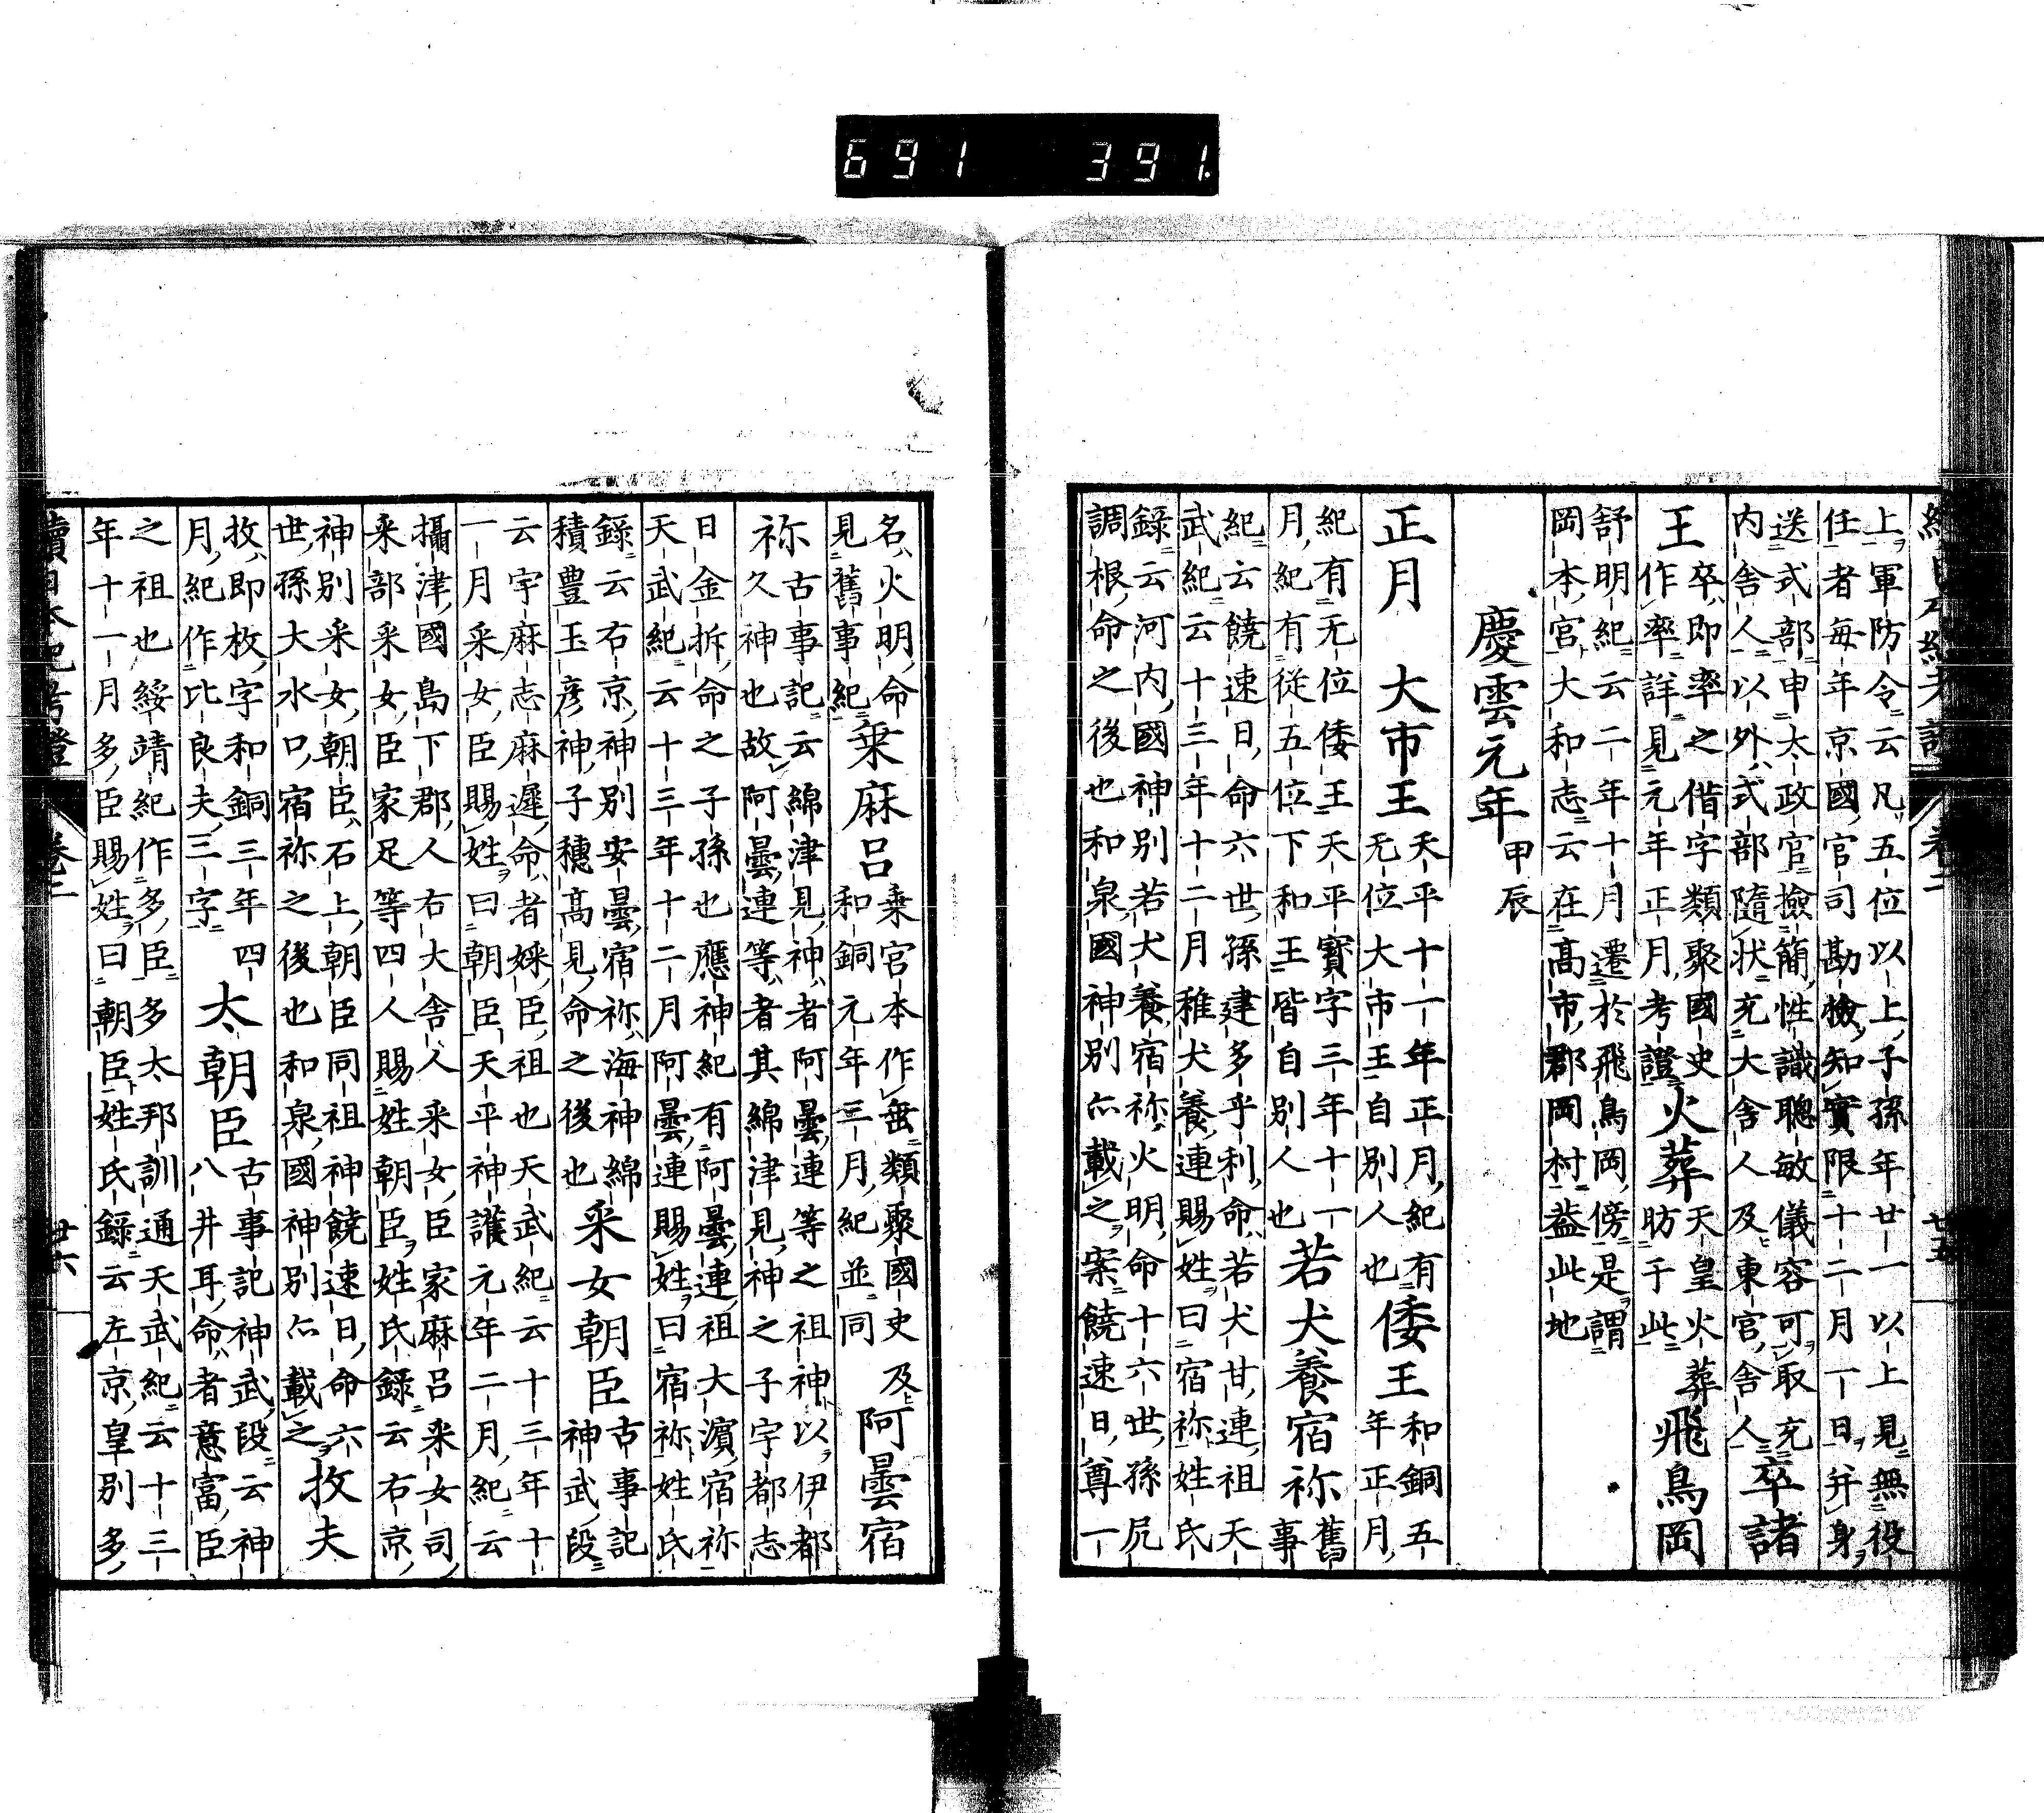 691 391.
上軍防令云凡五位以上子孫年廿一以上見無役
任者每年京國官司勘檢知實限十二月一日幷身
送式部申太政官撿簡性識聰敏儀容可取充
內舍人以外式部隨狀充大舍人及東宮舍人
卒諸
王
卒即率之偕字類聚國史
作率詳見元年正月考證
火葬
天皇火葬
昉于此
飛鳥岡
舒明紀云二年十月遷於飛鳥岡傍是謂
岡本宮大和志云在高市郡岡村蓋此地
慶雲元年甲辰
正月 大市王
天平十一年正月紀有
无位大市王自別人也
倭王
和銅五
年正月
紀有无位倭王天平寳字三年十一
月紀有從五位下和王皆自別人也
若犬養宿祢
舊
事
紀云饒速日命六世孫建多乎利命若犬甘連祖天
武紀云十三年十二月稚犬養連賜姓曰宿祢姓氏
錄云河内國神別若犬養宿祢火明命十六世孫尻
調根命之後也和泉國神別亦載之案饒速日尊一
名火明命
見舊事紀
乗麻呂
乗官本作垂類聚國史及
和銅元年三月紀並同
阿曇宿
祢
古事記云綿津見神者阿曇連等之祖神以伊都
久神也故阿曇連等者其綿津見神之子宇都志
日金拆命之子孫也應神紀有阿曇連祖大濵宿祢
天武紀云十三年十二月阿曇連賜姓曰宿祢姓氏
錄云右京神別安曇宿祢海神綿
積豊玉彦神子穗髙見命之後也
采女朝臣
古事記
神武段
云宇麻志麻遲命者婇臣祖也天武紀云十三年十
一月采女臣賜姓曰朝臣天平神護元年二月紀云
攝津國島下郡人右大舍人采女臣家麻呂采女司
采部采女臣家足等四人賜姓朝臣姓氏錄云右京
神別采女朝臣石上朝臣同祖神饒速日命六
世孫大水口宿祢之後也和泉國神別亦載之
枚夫
枚即枚字和銅三年四
月紀作比良夫三字
太朝臣
古事記神武段云神
八井耳命者意富臣
之祖也綏靖紀作多臣多太邦訓通天武紀云十三
年十一月多臣賜姓曰朝臣姓氏錄云左京皇別多
續日本紀考證 卷二 廿六